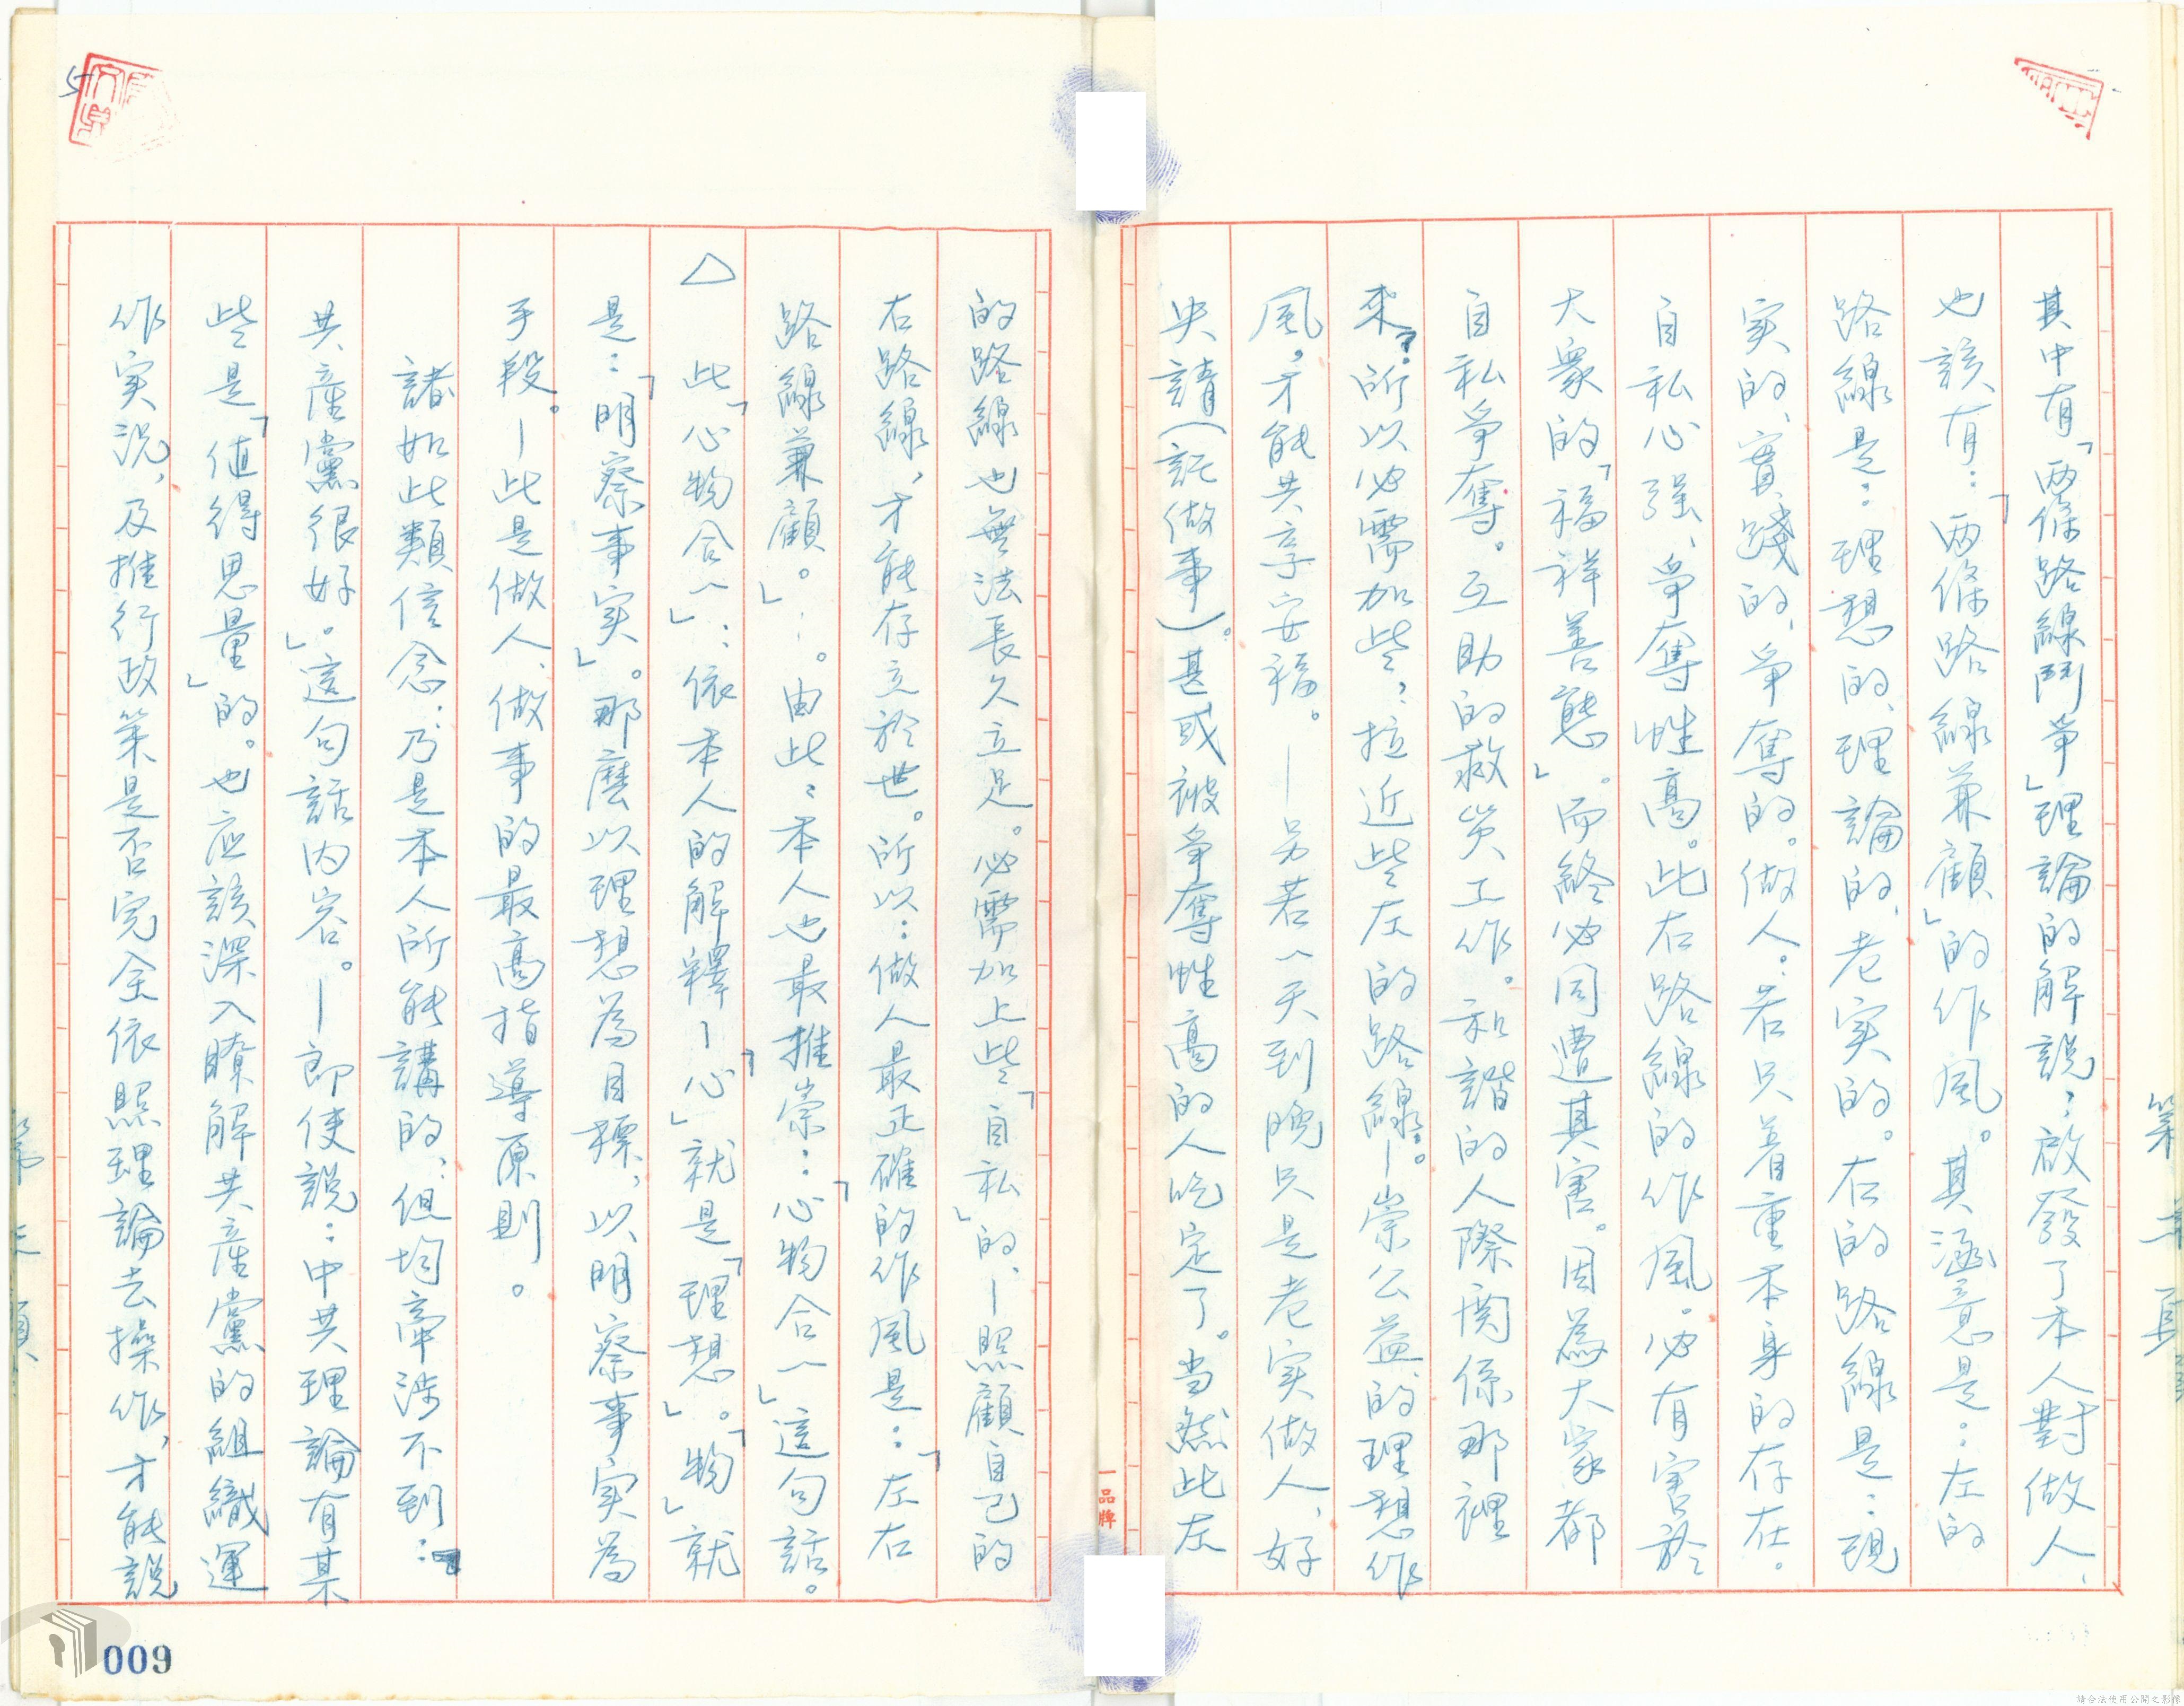 其中有「兩條路線鬥爭」理論的解說；啟發了本人對做人、
也該有：「兩條路線兼顧」的作風。其涵意是：左的
路線是：理想的、理論的、老实的。右的路線是：現
实的、實踐的、爭奪的。做人：若只着重本身的存在。
自私心强、爭奪性高。此右路線的作風。必有害於
大衆的「福祥善態」。而終必同遭其害。因為大家都
自私爭奪。互助的救災工作。和諧的人際関係那裡
來？所以必需加些，拉近些左的路線—崇公益的理想作
風。才能共享安福。—另若一天到晚只是老实做人、好
央請（託做事）。甚或被爭奪性高的人吃定了。当然此左
的路線也無法長久立足。必需加上些「自私」的，—照顧自己的
右路線，才能存立於世。所以：做人最正確的作風是：「左右
路線兼顧。」。由此：本人也最推崇：「心物合一」這句話。
△ 此「心物合一」：依本人的解釋—「心」就是「理想」。「物」就
是：「明察事实」。那麼以理想為目標，以明察事实為
手段。—此是做人、做事的最高指導原則。
諸如此類信念，乃是本人所能講的，但均牽涉不到：
共產黨很好。」這句話內容。—即使說：中共理論有某
些是「值得思量」的。也应該深入瞭解共產黨的組織運
作実況，及推行政策是否完全依照理論去操作，才能說
第 頁
一品牌
009
請合法使用公開之影像